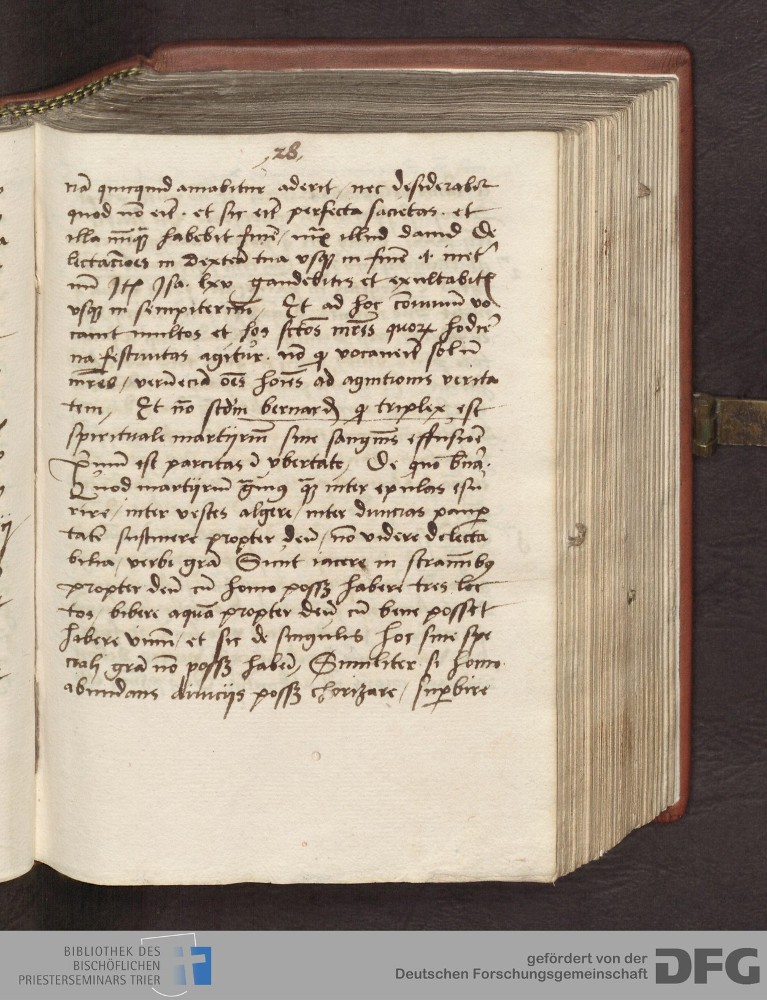 28
nā quicquid amabitur aderit / nec desiderabit
quod nō erit . et sic erit perfecta societas . et
illa nunq̄ habebit finē / iuxᵃ illud dauid De
lectacōes in dexterā tua vsq̨ in finē
Itē Isa. lxv gaudebitis et exultabitis
vsq̨ in sempiternū / Et ad hoc conuiuiū vo
cauit multos et hos sctōs mr̄es quorꝝ hodie
na festiuitas agitur . nō ꝙ vocauerit solū
mr̄es / verūeciā oēs hoīes ad agnitionis verita
tem / Et nō scdm̄ bernardū ꝙ triplex est
spirituale martyriū sine sanguinis effusiōe
Primū est parcitas ī vbertate / De quo b̄nar.
Quod martyriū ḡuius quā inter epulas esu
rire / inter vestes algere / inter diuicias pauꝑ
tatē sustinere propter deū / nō videre delecta
bilia / verbi grā Sicut iacere in straminibꝰ
propter deū cū homo possꝫ habere tres lec
tos / bibere aquā propter deū cū bene posset
habere vinū / et sic de singulis hoc sine spe
ciali grā nō possꝫ haberi / Similiter si homo
abundans diuicijs possꝫ chorizare / suꝑbire
BIBLIOTHEK DES
BISCHÖFLICHEN
PRIESTERSEMINARS TRIER
gefördert von der
Deutschen Forschungsgemeinschaft
DFG